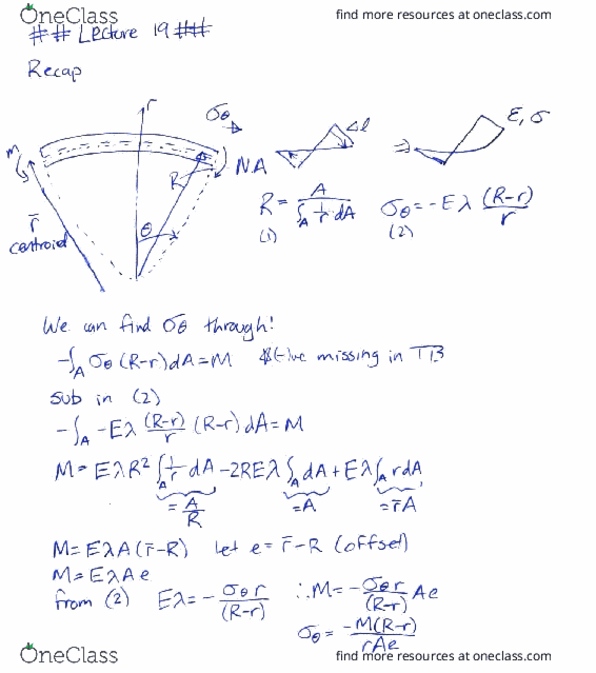 OneClass
find more resources at oneclass.com
## Lecture 19 ##
Recap
r
σθ
Δl
ε, σ
m
NA
R
θ
r̄
centroid
⇒
R = A / ∫_A 1/r dA
(1)
σθ = -Eλ (R-r)/r
(2)
We can find σθ through:
-∫_A σθ (R-r) dA = M   (-)ve missing in TB
sub in (2)
-∫_A -Eλ (R-r)/r (R-r) dA = M
M = EλR² ∫_A 1/r dA - 2REλ ∫_A dA + Eλ ∫_A r dA
= A/R   = A   = r̄A
M = EλA (r̄-R)   let e = r̄-R (offset)
M = EλAe
from (2)   Eλ = - σθ r/(R-r)   ∴ M = - σθ r/(R-r) Ae
σθ = -M(R-r)/rAe
OneClass
find more resources at oneclass.com